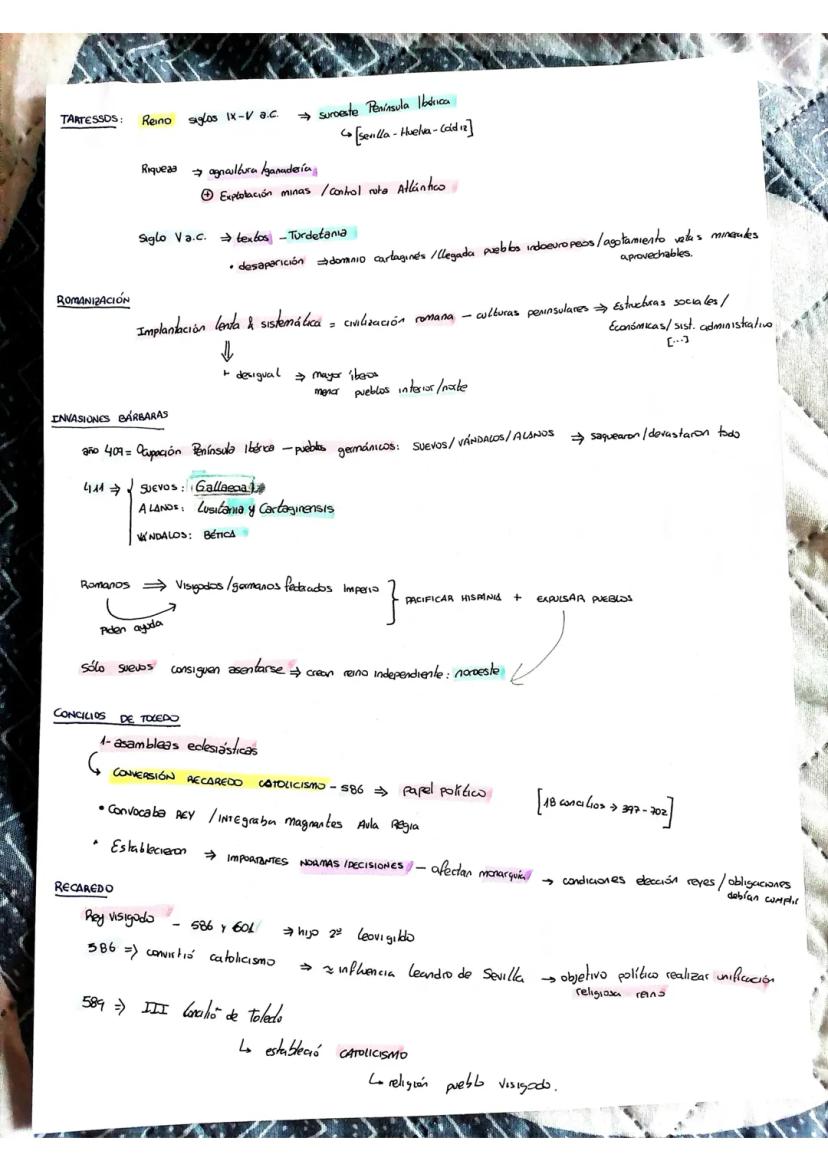 TARTESSOS: Reino siglos IX-V a.c. ⇒ suroeste Península Ibérica
↳ [Sevilla - Huelva - Cádiz]
Riqueza ⇒ agricultura/ganadería
⊕ Explotación minas / control ruta Atlántico
Siglo V a.c. ⇒ textos - Turdetania
• desaparición ⇒ dominio cartaginés / llegada pueblos indoeuropeos / agotamiento vetas minerales
aprovechables.
ROMANIZACIÓN
Implantación lenta & sistemática = civilización romana - culturas peninsulares ⇒ Estructuras sociales /
Económicas / sist. administrativo
[...]
⇓
+ desigual ⇒ mayor íberos
menor pueblos interior/norte
INVASIONES BÁRBARAS
año 409 = Ocupación Península Ibérica - pueblos germánicos: SUEVOS / VÁNDALOS / ALANOS ⇒ saquearon / devastaron todo
411 ⇒ { SUEVOS: Gallaecia
ALANOS: Lusitania y Cartaginensis
VÁNDALOS: BÉTICA
Romanos ⇒ Visigodos / germanos federados Imperio } PACIFICAR HISPANIA + EXPULSAR PUEBLOS
Piden ayuda
Sólo suevos consiguen asentarse ⇒ crean reino independiente: noroeste
CONCILIOS DE TOLEDO
1- asambleas eclesiásticas
↳ CONVERSIÓN RECAREDO CATOLICISMO - 586 ⇒ papel político [18 concilios → 397 - 702]
• Convocaba REY / INTEGRABA magnantes Aula Regia
• Establecieron ⇒ IMPORTANTES NORMAS / DECISIONES - afectan monarquía → condiciones elección reyes / obligaciones
debían cumplir
RECAREDO
Rey visigodo - 586 y 601 ⇒ hijo 2º Leovigildo
586 ⇒ convirtió catolicismo ⇒ ≈ influencia Leandro de Sevilla → objetivo político realizar unificación
religiosa reino
589 ⇒ III Concilio de Toledo
↳ estableció CATOLICISMO
↳ religión pueblo visigodo.